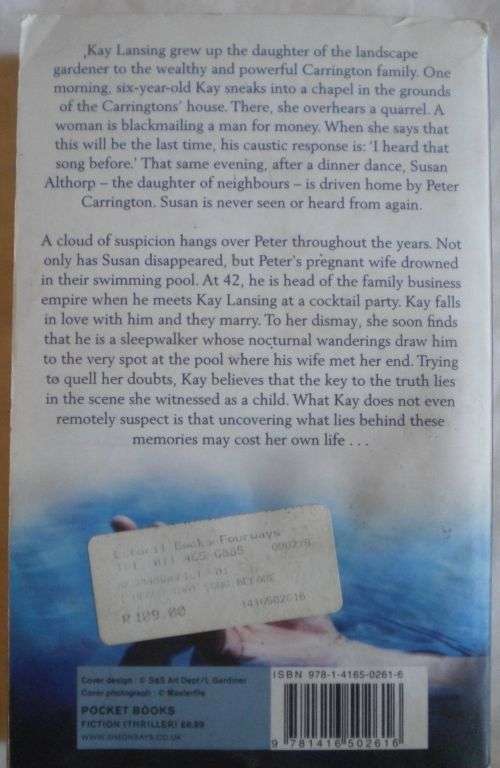 Kay Lansing grew up the daughter of the landscape
gardener to the wealthy and powerful Carrington family. One
morning, six-year-old Kay sneaks into a chapel in the grounds
of the Carringtons' house. There, she overhears a quarrel. A
woman is blackmailing a man for money. When she says that
this will be the last time, his caustic response is: 'I heard that
song before.' That same evening, after a dinner dance, Susan
Althorp – the daughter of neighbours – is driven home by Peter
Carrington. Susan is never seen or heard from again.
A cloud of suspicion hangs over Peter throughout the years. Not
only has Susan disappeared, but Peter's pregnant wife drowned
in their swimming pool. At 42, he is head of the family business
empire when he meets Kay Lansing at a cocktail party. Kay falls
in love with him and they marry. To her dismay, she soon finds
that he is a sleepwalker whose nocturnal wanderings draw him
to the very spot at the pool where his wife met her end. Trying
to quell her doubts, Kay believes that the key to the truth lies
in the scene she witnessed as a child. What Kay does not even
remotely suspect is that uncovering what lies behind these
memories may cost her own life . . .
Books Fourways
TEL. 011 465 6885
R 109.00 1416502616
Cover design : © S&S Art Dept/L Gardiner
Cover photograph : © Masterfile
POCKET BOOKS
FICTION (THRILLER) £6.99
WWW.SIMONSAYS.CO.UK
ISBN 978-1-4165-0261-6
9 781416 502616